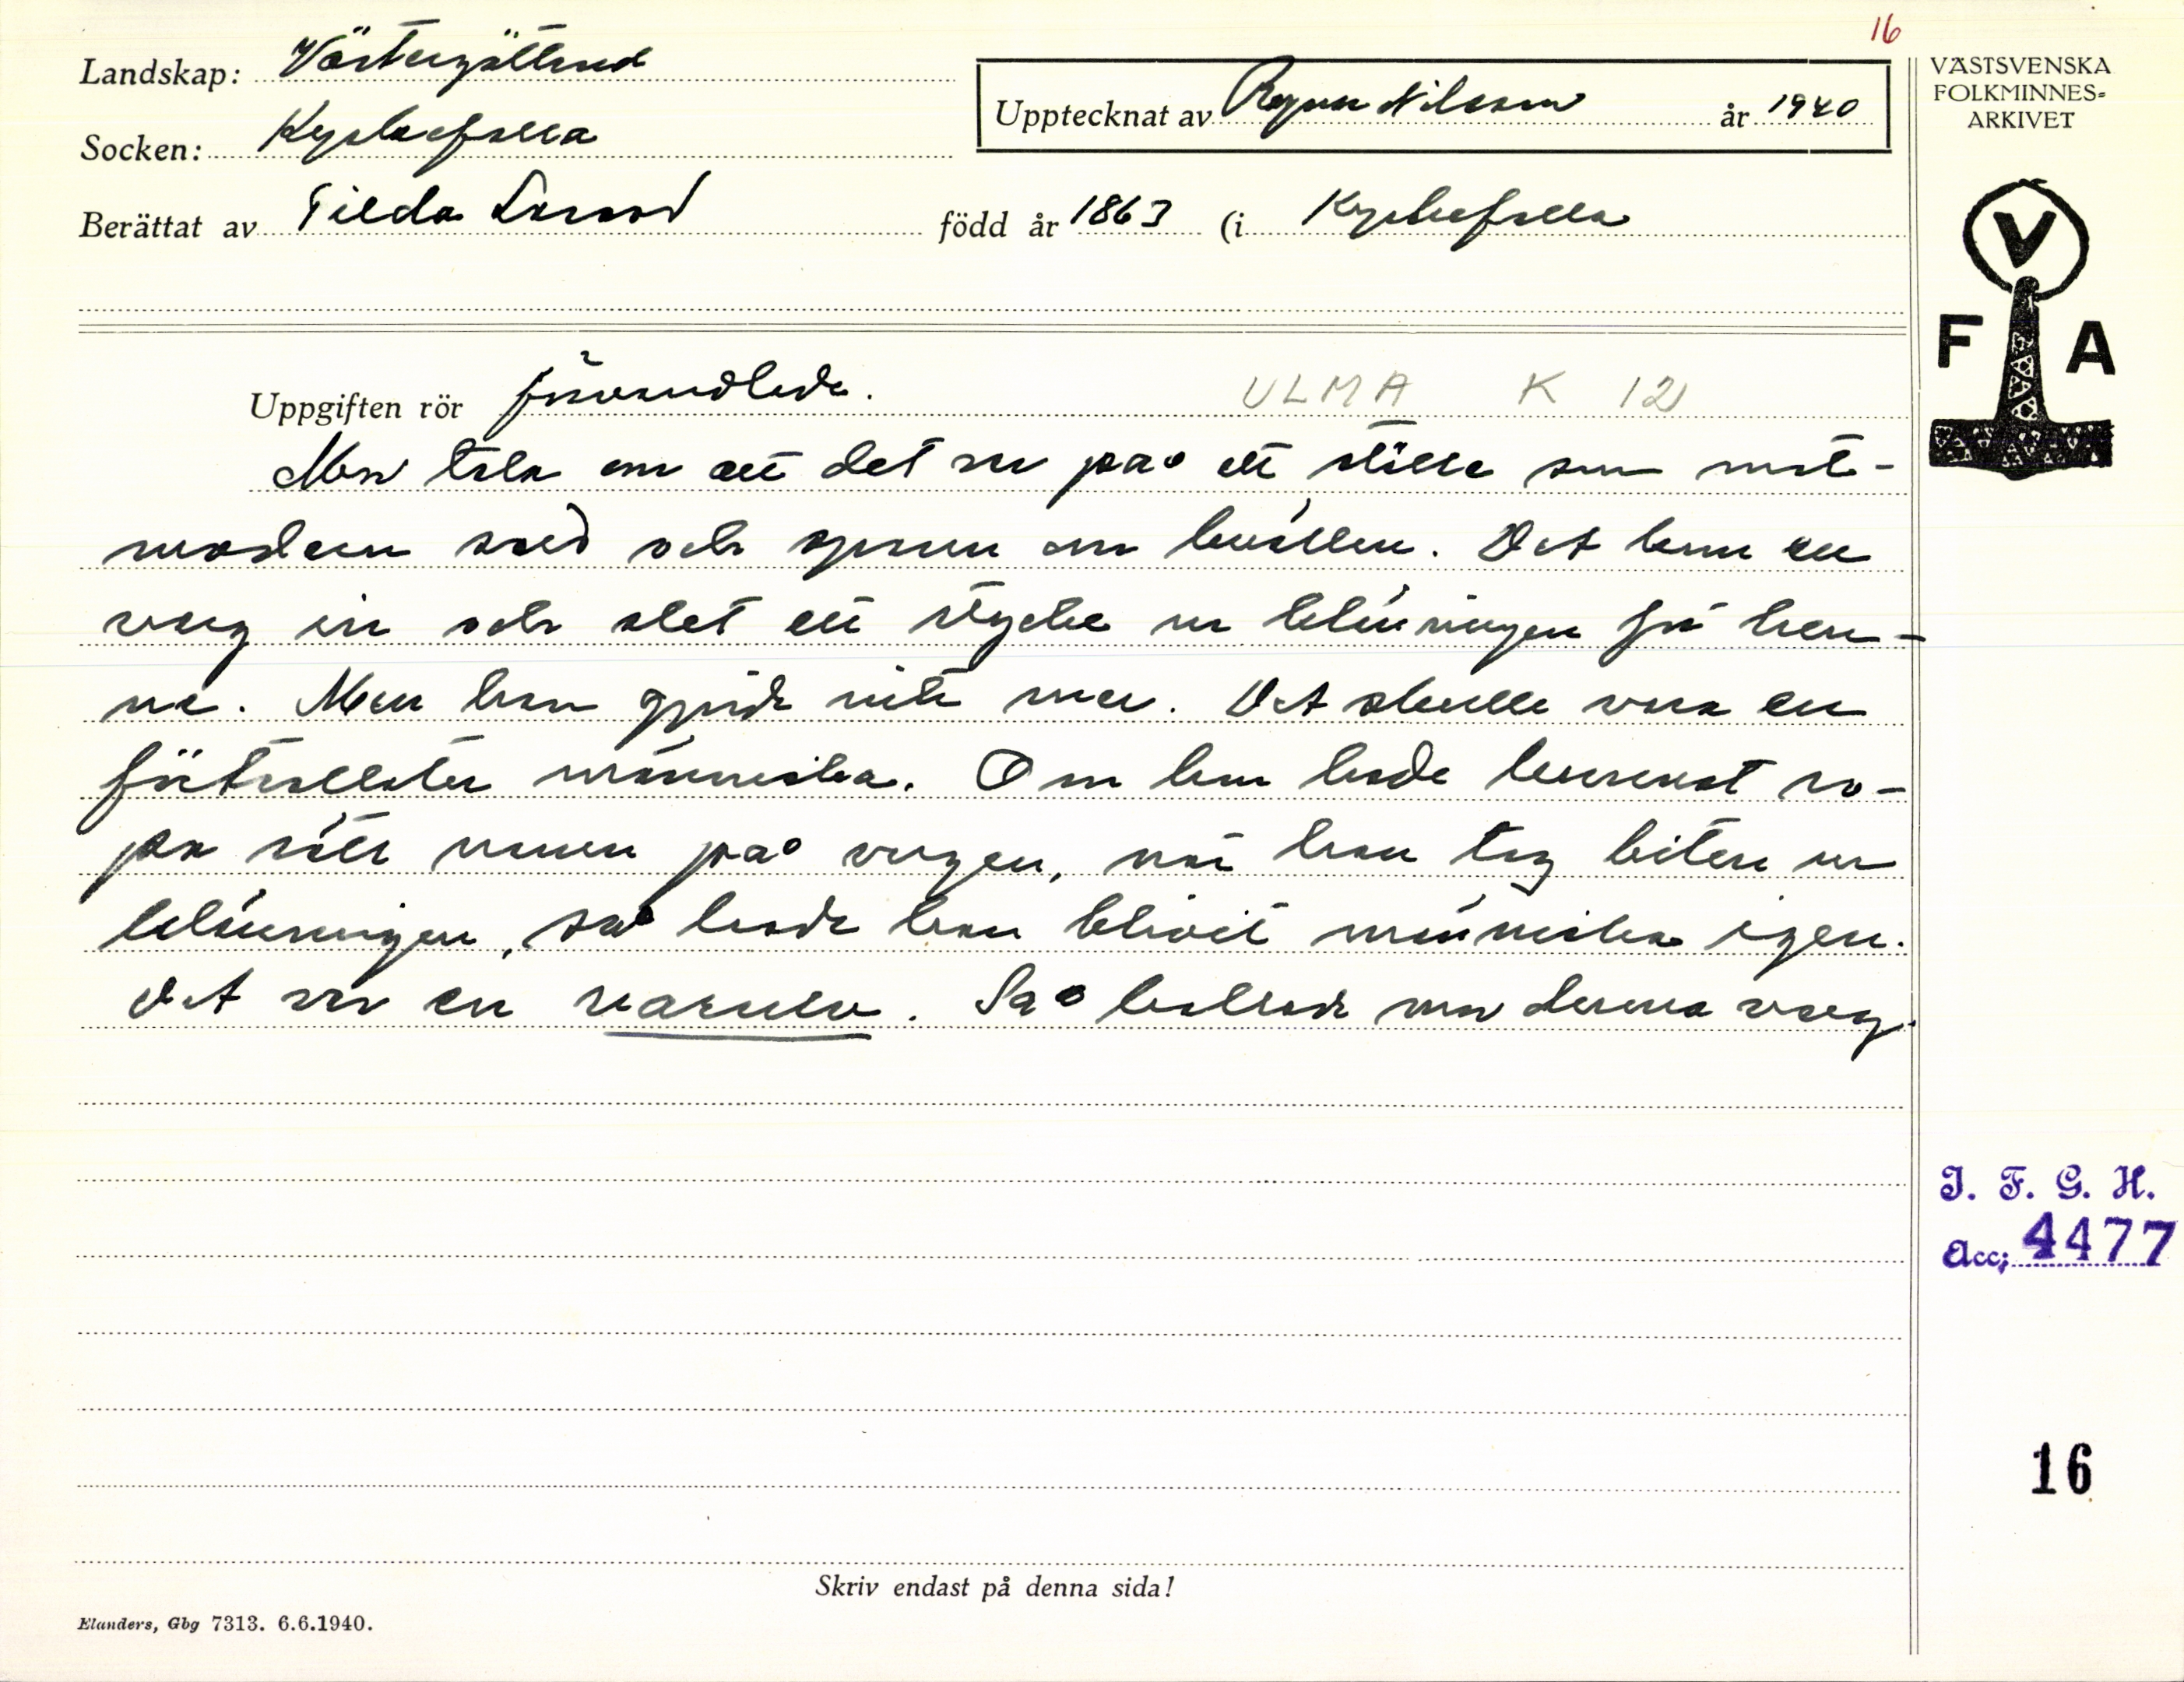 16
Landskap: Västergötland
Socken: Kyrkefalla
Upptecknat av Ragnar Nilsson år 1940
Berättat av Tilda Larsson född år 1863 (i Kyrkefalla
VÄSTSVENSKA
FOLKMINNES=
ARKIVET
V
F A
Uppgiften rör förvandlade. ULMA K 12
Man tala om att det var på ett ställe som mat-
modern satt och spann om kvällen. Det kom en
varg in och slet ett stycke ur klänningen för hen-
ne. Men han gjorde inte mer. Det skulle vara en
förtrollater människa. Om hon hade kunnat ro-
pa rätt namn på vargen, när han tog biten ur
klänningen, så hade han blivit människa igen.
Det var en varulv. Så kallade man denna varg.
I. F. G. H.
Acc; 4477
16
Skriv endast på denna sida!
Elanders, Gbg 7313. 6.6.1940.